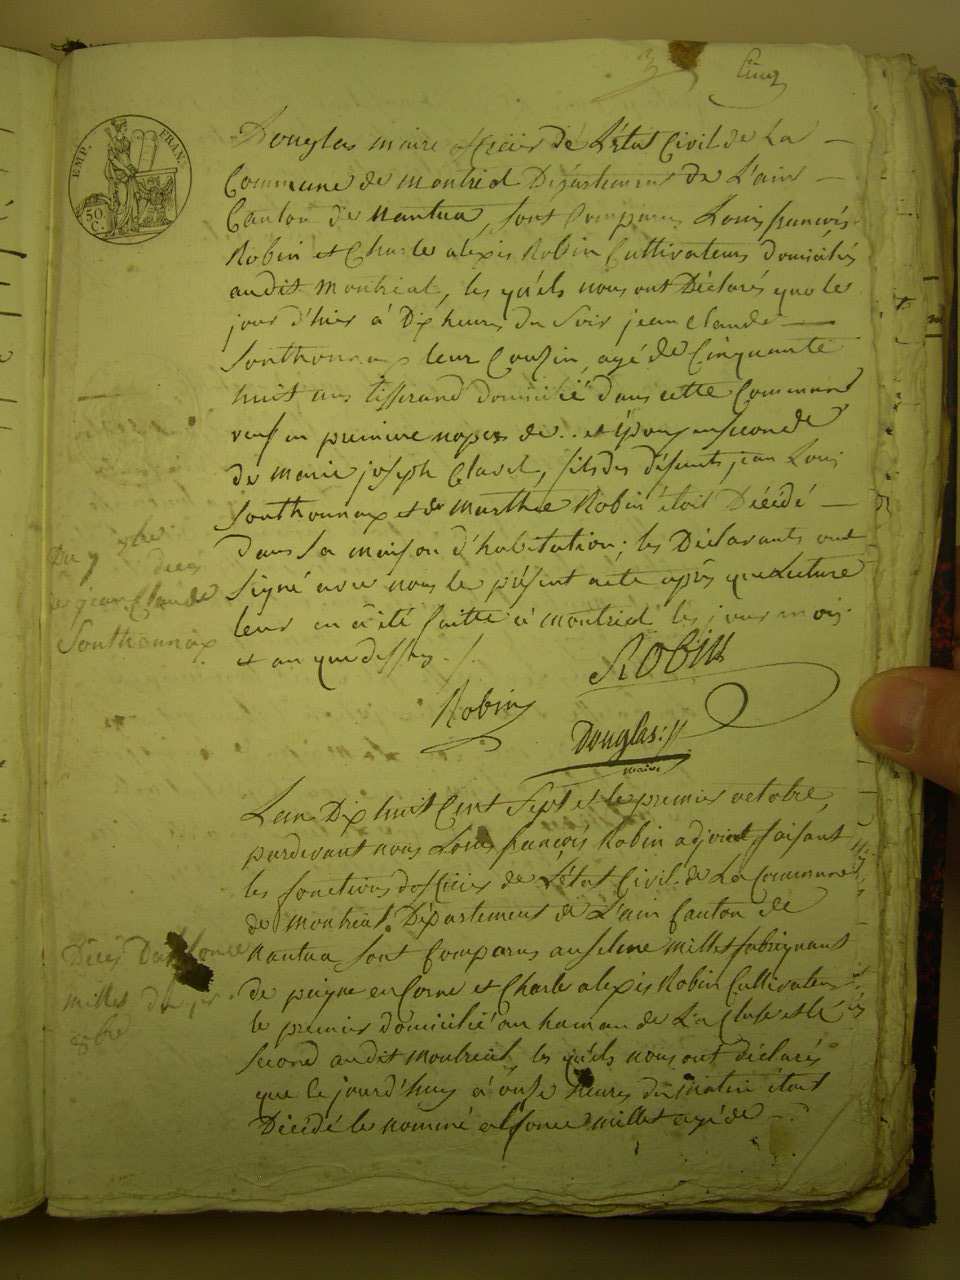 3
Cinq
EMP. FRAN.
50 C.
Douglas maire officier de L'état Civil de La
Commune de montréal Département de L'ain
Canton de Nantua, sont Comparus Louis françois
Robin et Charle alexis Robin Cultivateurs domiciliés
audit montréal, les quels nous ont Déclarés que le
jour d'hier à Dix heures du Soir jean Claude
Sonthonnax leur Couzin, agé de Cinquante
huit ans tisserand domicilié dans cette Commune
veuf en premiere nopces de .. et époux en seconde
de marie joseph Clavel, fils des défunts jean Louis
Sonthonnax et de marthe Robin étoit Décédé
dans sa maison d'habitation; les Déclarants ont
Signé avec nous le présent acte après que Lecture
leur en a été faitte à montréal les jour mois
et an que dessus ./.
Du 7 7bre
deces
de jean Claude
Sonthonnax
Robin
Robin
Douglas
maire
L'an Dix huit Cent Sept et le premier octobre,
pardevant nous Louis françois Robin adjoint faisant
les fonctions d'officier de L'état Civil de La Commune
de montréal Département de L'ain Canton de
Nantua sont Comparus anselme millet fabriquant
de peigne en Corne et Charle alexis Robin Cultivateur
le premier domicilié au hamau de La Cluse et le
second audit montréal, les quels nous ont déclarés
que le jourd'huy à onze heures du matin étoit
Décédé le nommé alfonce millet agé de
Décès D'alfonce
millet du 1er
8bre